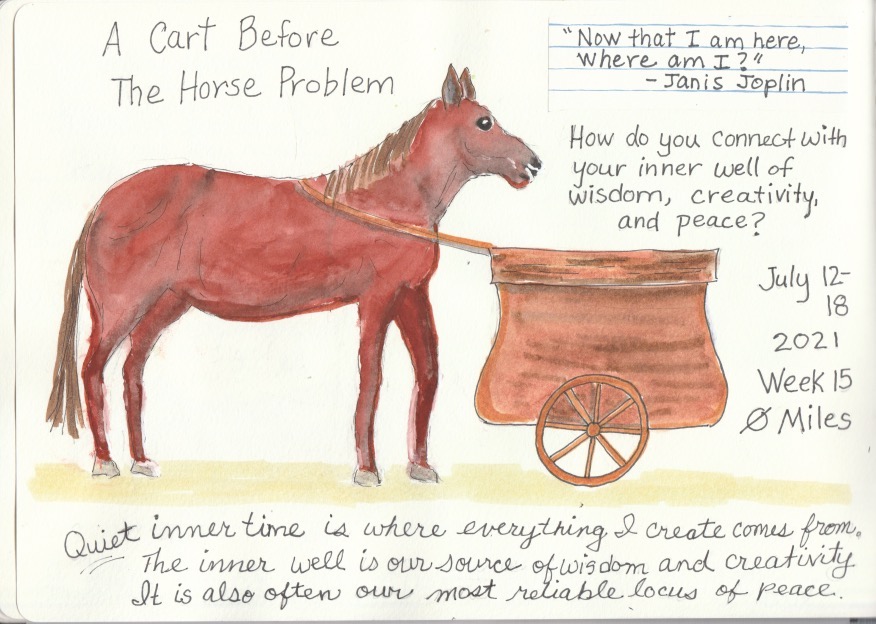 A Cart Before
The Horse Problem
"Now that I am here,
Where am I?"
- Janis Joplin
How do you connect with
your inner well of
wisdom, creativity,
and peace?
July 12-
18
2021
Week 15
Ø Miles
Quiet inner time is where everything I create comes from.
The inner well is our source of wisdom and creativity
It is also often our most reliable locus of peace.